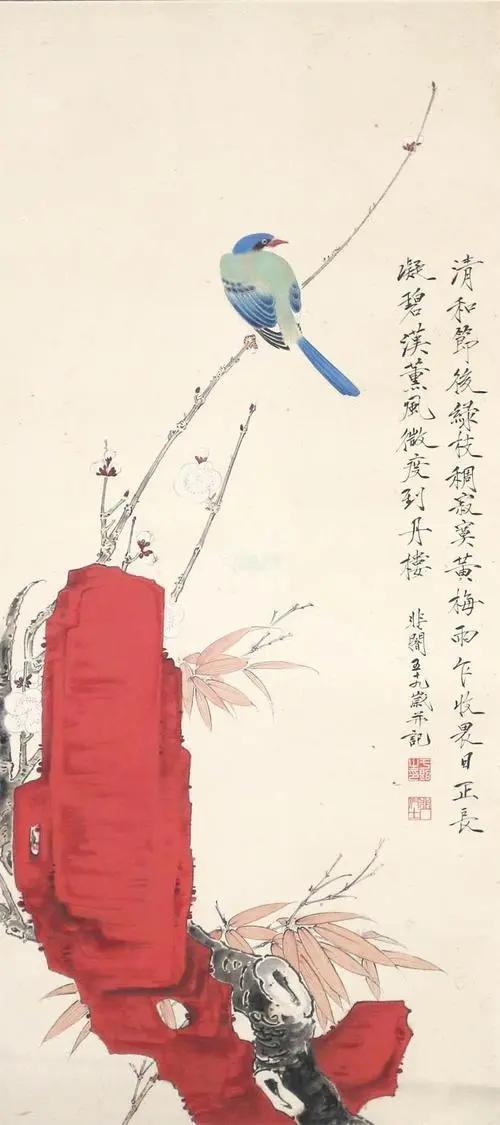 清和節後綠枝稠寂寞黃梅雨乍收畏日正長
凝碧漢薰風微度到丹樓
非闇五十九歲并記